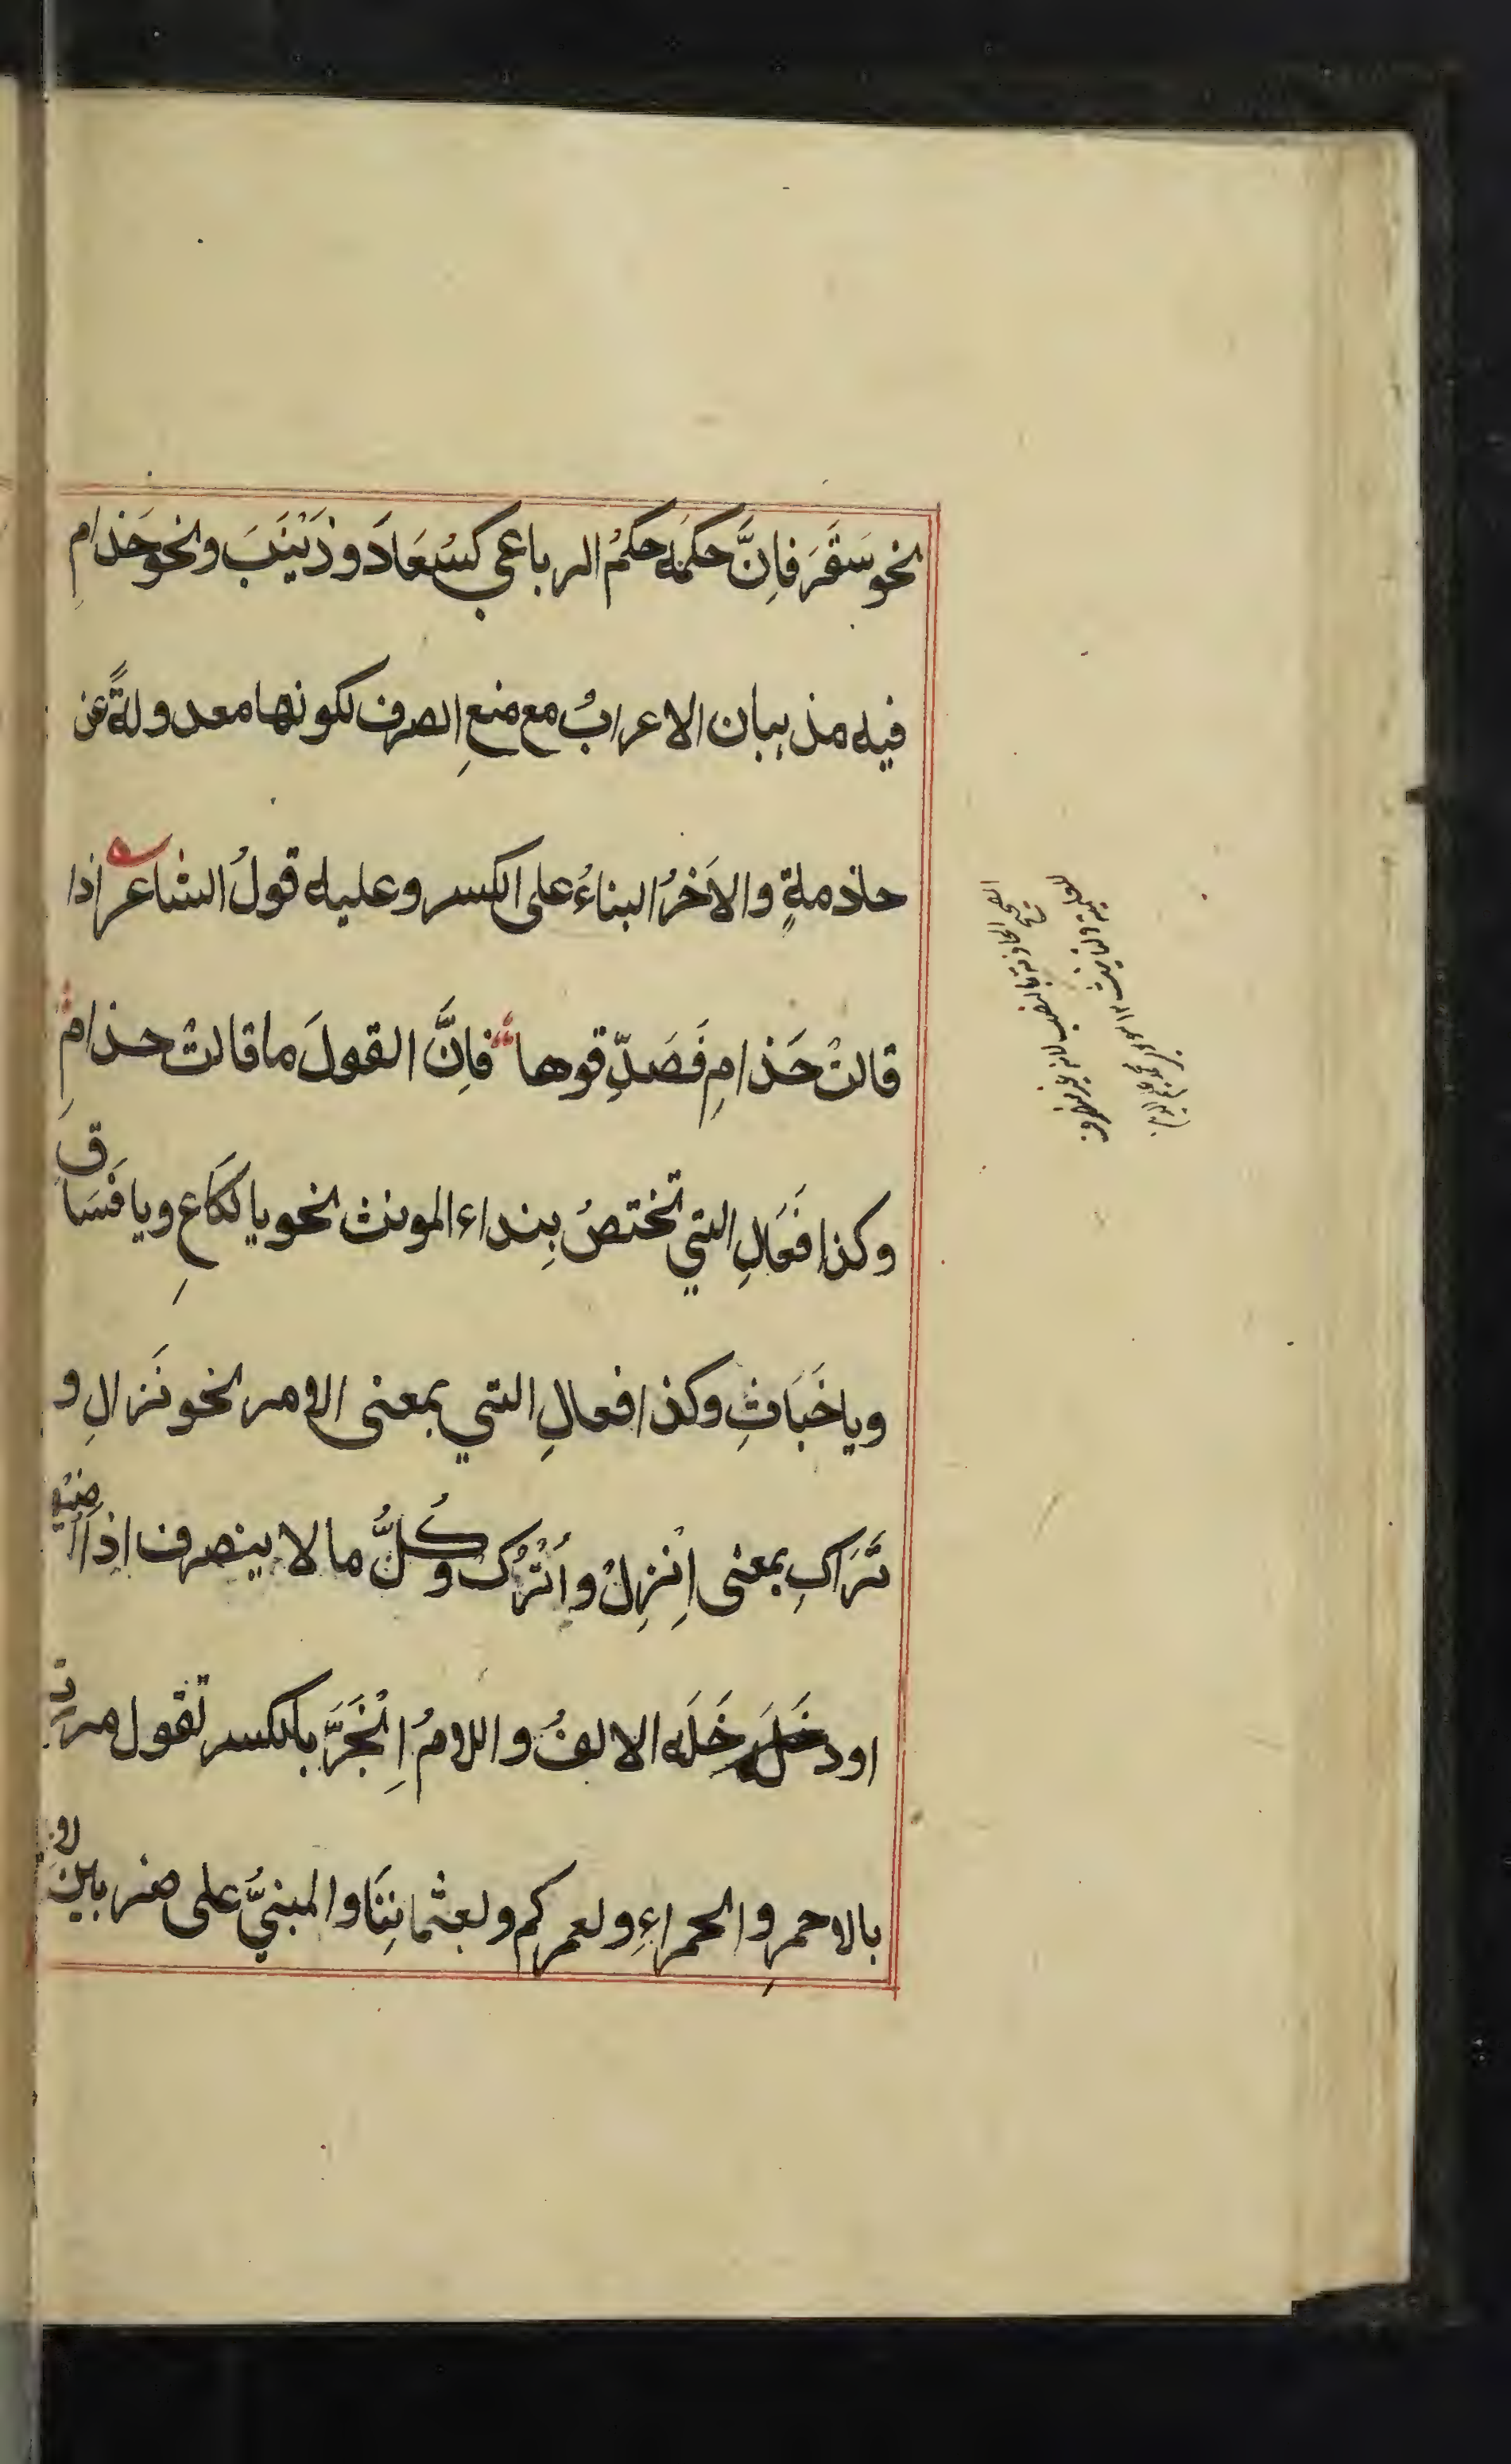 نحو سَقَرَ فاِنَّ حكمَه حكمُ الرباعي كسُعَادَ و زَيْنَبَ ونحو حَذامِ
فيه مذهبان الاعرابُ مع منعِ الصرف لكونها معدولةً عن
حاذمةٍ والاَخرُ البناءُ على الكسر وعليه قولُ الشاعر اذا
قالتْ حَذامِ فَصَدِّقوها فاِنَّ القولَ ما قالتْ حذامِ
وكذا فَعَالِ التي تختصُ بِنداء المونث نحو يا لَكَاعِ ويا فَسَاقِ
ويا خَبَاثِ وكذا فعالِ التي بمعنى الامر نحو نَزالِ و
تَرَاكِ بمعنى اِنْزِلْ و اُتْرُكْ وكُلُّ ما لا ينصرف اِذا اُضيْفَ
او دخَلَه الالفُ واللامُ اِنْجَرَّ بالكسر تقول مررتُ
بالاحمرِ والحمراءِ و لعمركم و لعثماننَا والمبنيُّ على ضربين